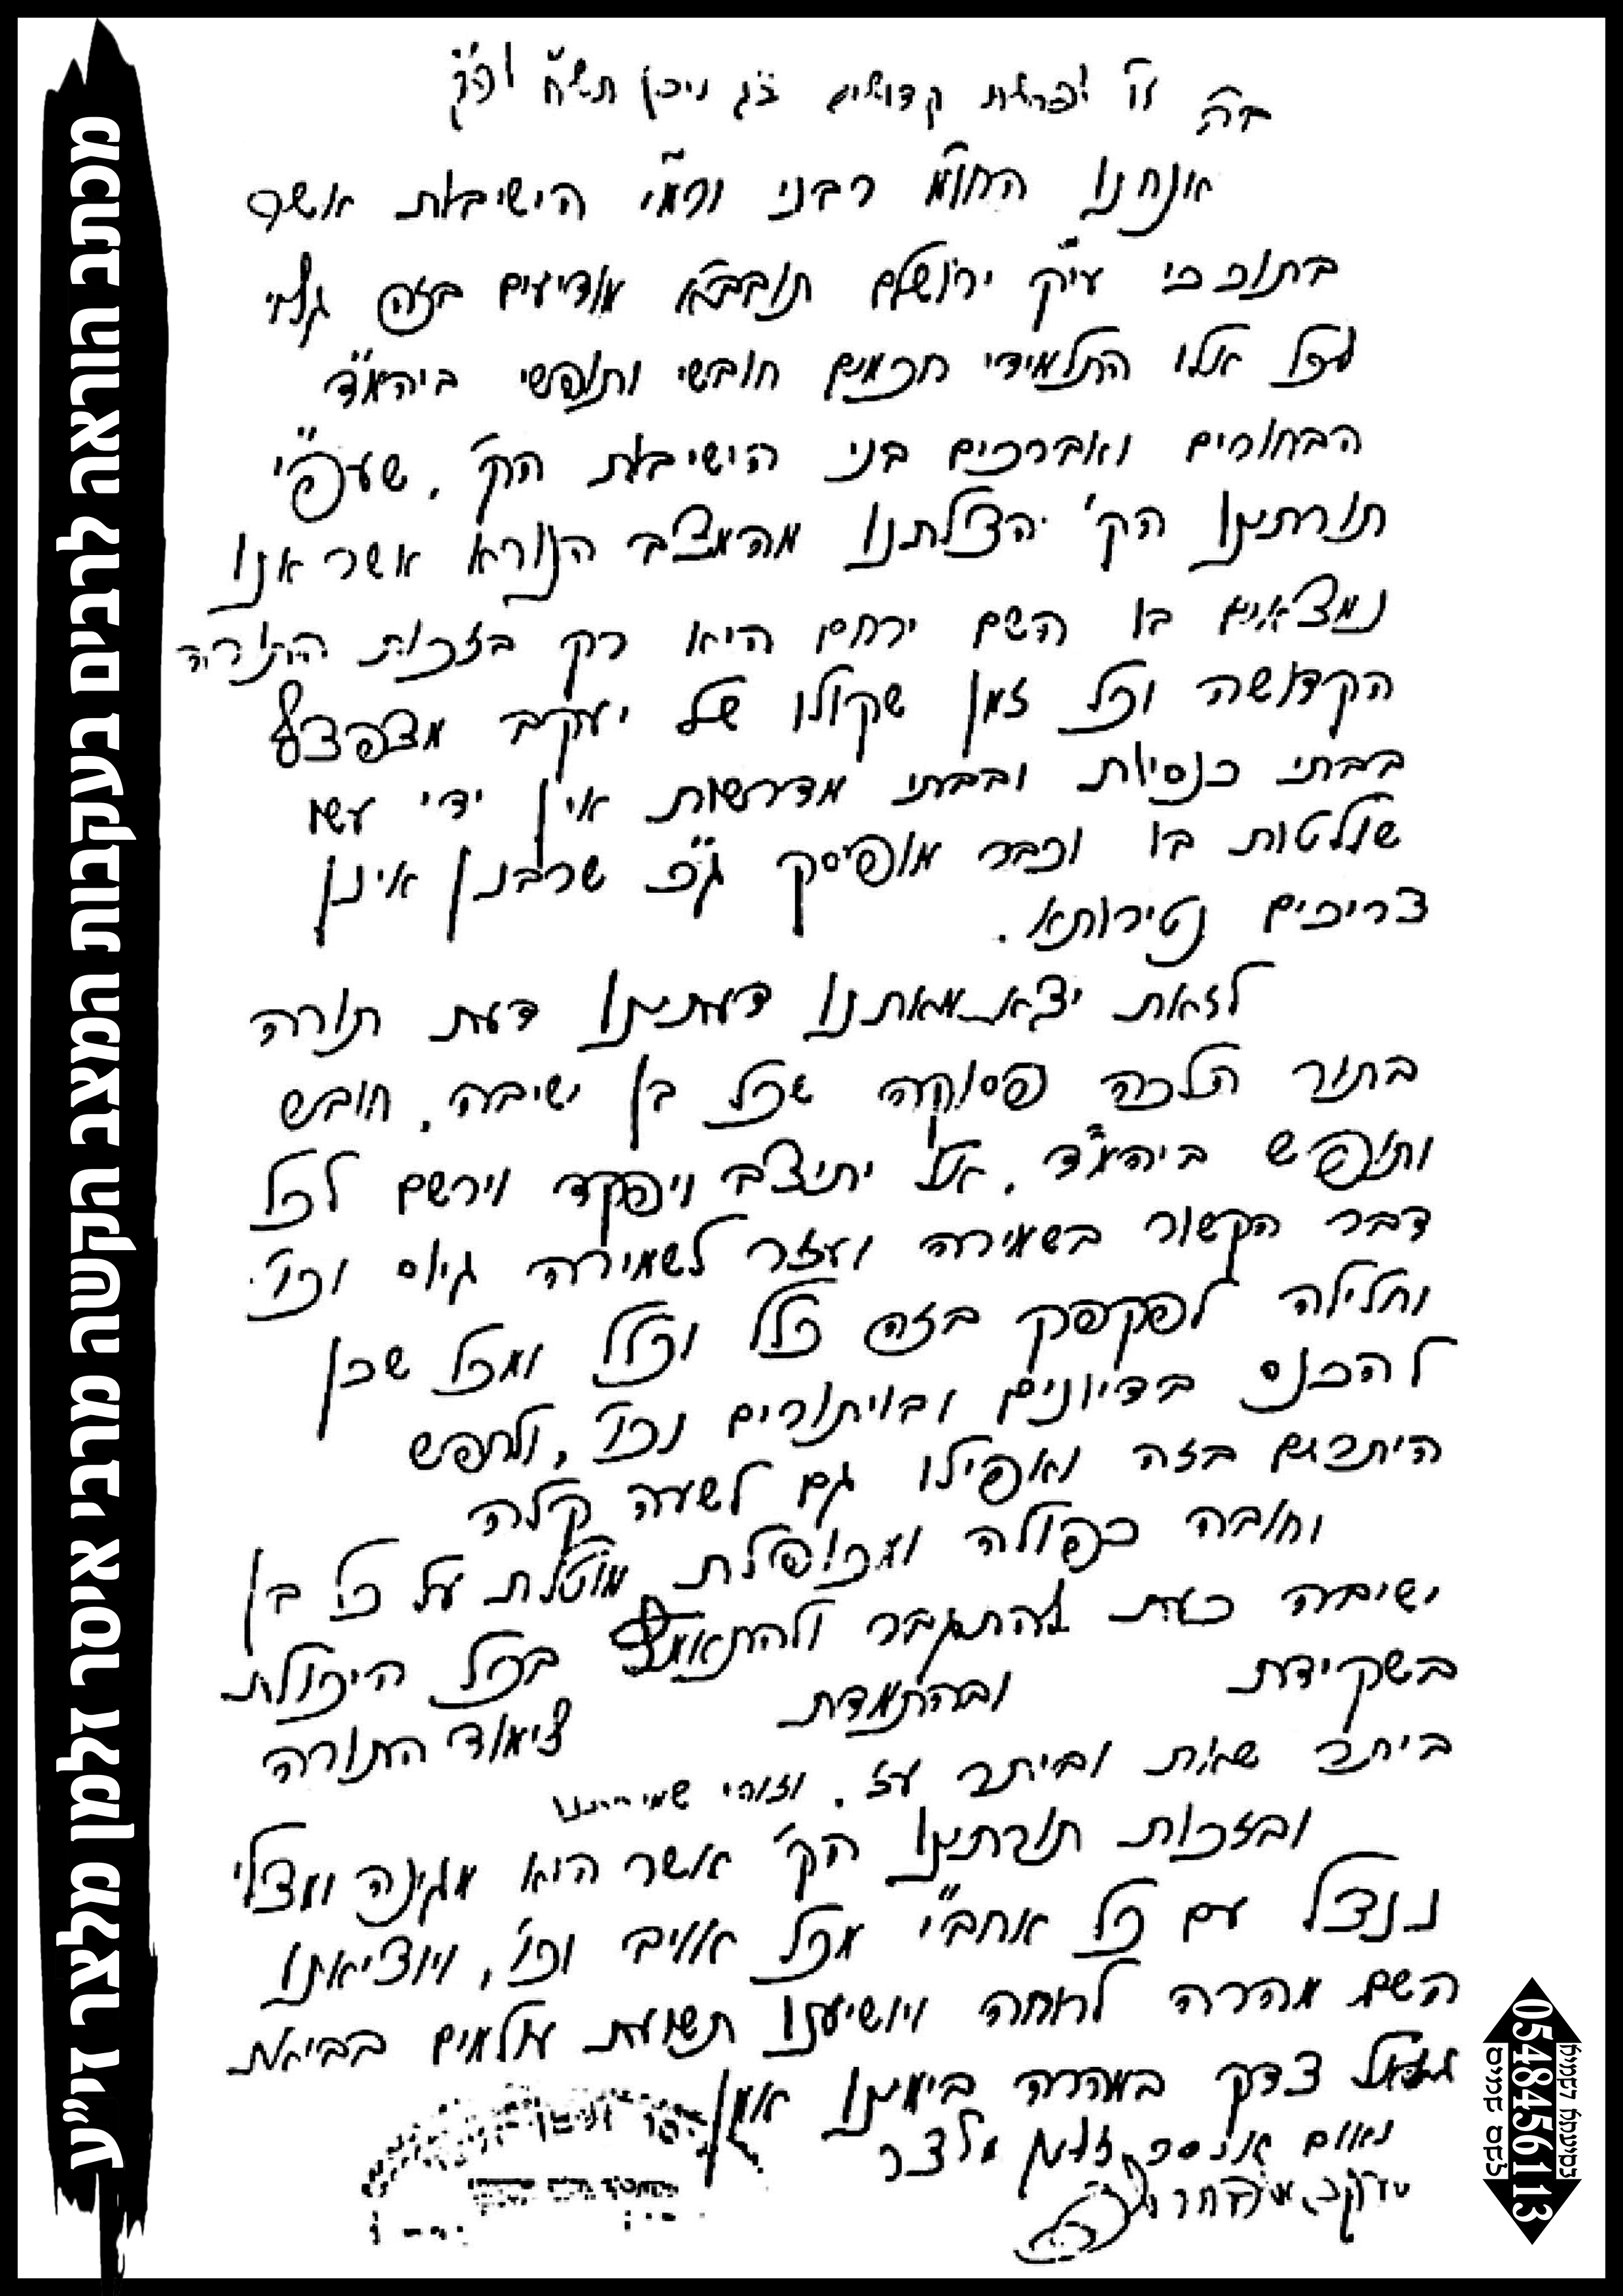 מכתב הוראה לרבים בעקבות המצב הקשה מרבי איסר זלמן מלצר זי"ע
ב"ה ו' לפרשת קדושים כ"ג ניסן תש"ח לפ"ק
אנחנו החו"מ רבני ורמ"י הישיבות אשר
בתוככי עיה"ק ירושלם תובב"א מודיעים בזה גלוי
לכל אלו התלמידי חכמים חובשי ותופשי ביהמ"ד
הבחורים ואברכים בני הישיבות הק', שעפ"י
תורתינו הק' הצלתנו מהמצב הנורא אשר אנו
נמצאים בו השם ירחם היא רק בזכות התורה
הקדושה וכל זמן שקולו של יעקב מצפצף
בבתי כנסיות ובבתי מדרשות אין ידי עשו
שולטות בו וכבר מופסק ג"כ שרבנן אינן
צריכים נטירותא.
לזאת יצא מאתנו דעתינו דעת תורה
בתור הלכה פסוקה שכל בן ישיבה, חובש
ותופש ביהמ"ד, אל יתיצב ויפקד וירשם לכל
דבר הקשור בשמירה ועזר לשמירה גיוס וכו'.
וחלילה לפקפק בזה כלל וכלל ומכל שכן
להכנס בדיונים ובויתורים וכו', ולחפש
היתרים בזה ואפילו גם לשעה קלה
וחובה כפולה ומכופלת מוטלת על כל בן
ישיבה כעת להתגבר ולהתאמץ בכל היכולת
בשקידת ובהתמדת לימוד התורה
ביתר שאת וביתר עז. וזוהי שמירתנו
ובזכות תורתינו הק' אשר היא מגינה ומצלי
ננצל עם כל אחב"י מכל אויב וכו', ויוציאנו
השם מהרה לרוחה ויושיענו תשועת עולמים בביאת
גואל צדק במהרה בימינו אמן
נאום איסר זלמן מלצר
לפקס קמפיינים
0548456113